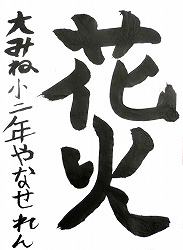 花火
大みね小二年やなせれん